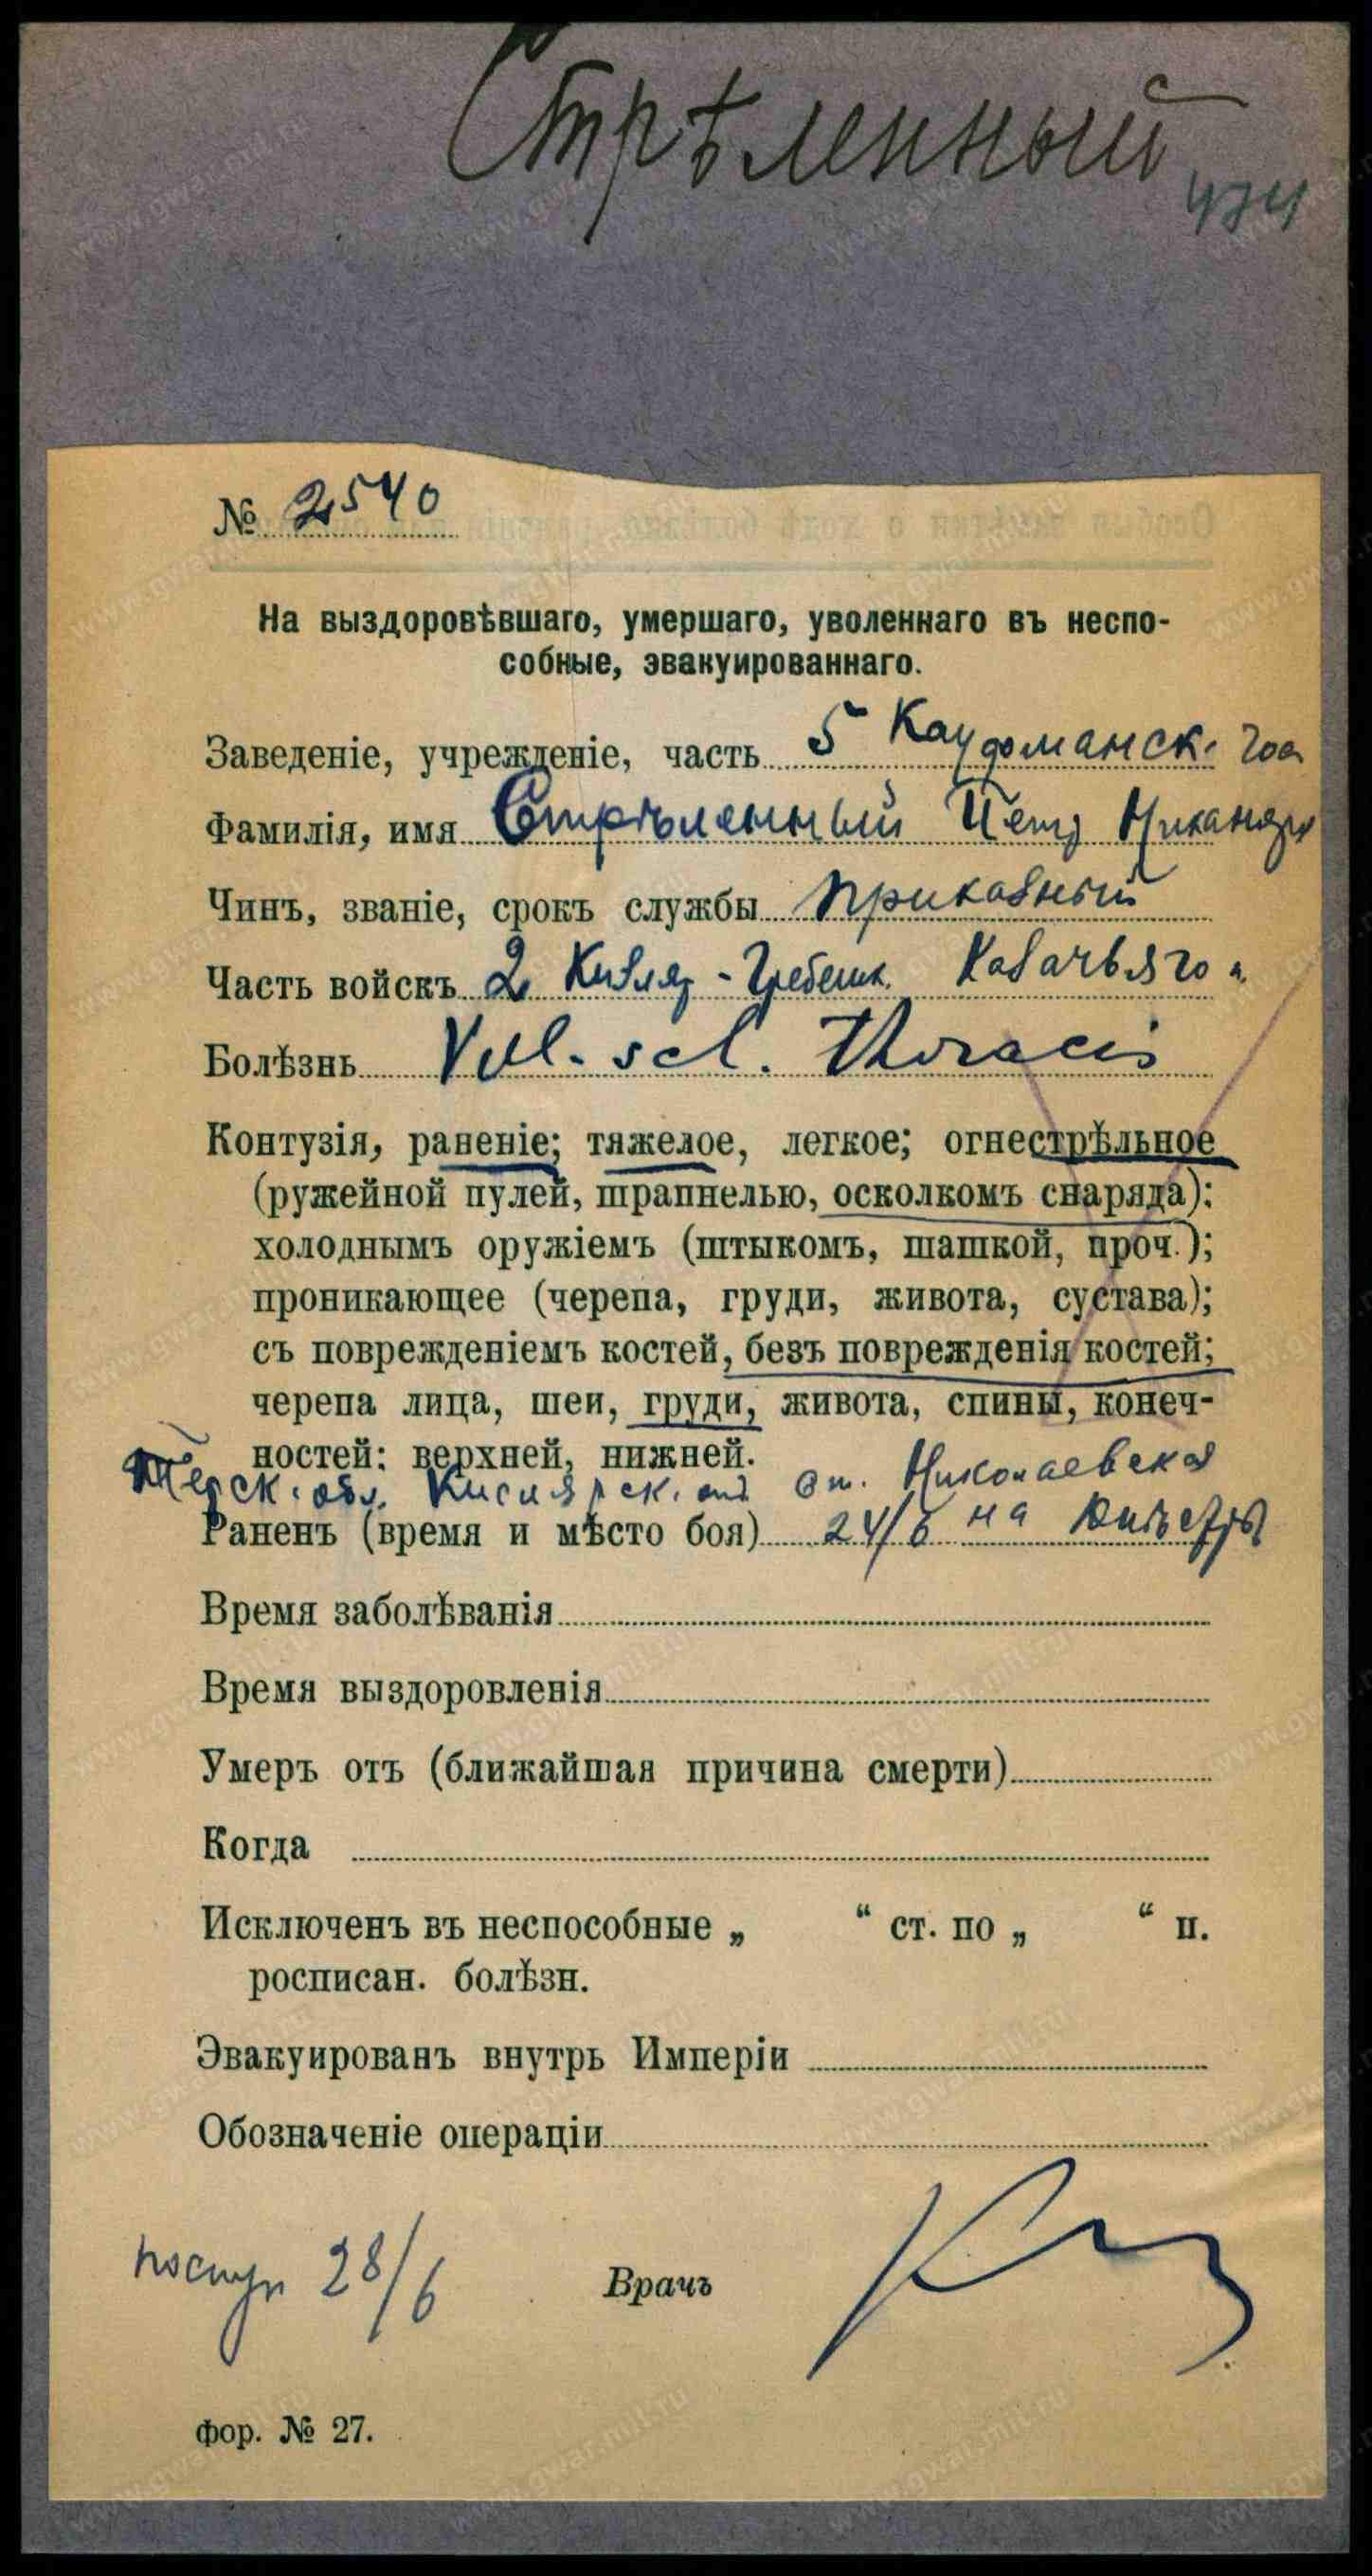 Стрѣленный
434
№ 2540
На выздоровѣвшаго, умершаго, уволеннаго въ неспо-
собные, эвакуированнаго.
Заведеніе, учрежденіе, часть 5 Кауфманск. гос
Фамилія, имя Стрѣленный Петр
Чинъ, званіе, срокъ службы приказный
Часть войскъ 2 Кизляр-Гребенск. Казачьяго п.
Болѣзнь Vul. scl. thoracis
Контузія, раненіе; тяжелое, легкое; огнестрѣльное
(ружейной пулей, шрапнелью, осколкомъ снаряда);
холоднымъ оружіемъ (штыкомъ, шашкой, проч.);
проникающее (черепа, груди, живота, сустава);
съ поврежденіемъ костей, безъ поврежденія костей;
черепа лица, шеи, груди, живота, спины, конеч-
ностей: верхней, нижней.
Терск. обл. Кислярск. отд ст. Николаевская
Раненъ (время и мѣсто боя) 24/6 на Днѣстрѣ
Время заболѣванія
Время выздоровленія
Умеръ отъ (ближайшая причина смерти)
Когда
Исключенъ въ неспособные „ “ ст. по „ “ п.
росписан. болѣзн.
Эвакуированъ внутрь Имперіи
Обозначеніе операціи
поступ 28/6 Врачъ
фор. № 27.